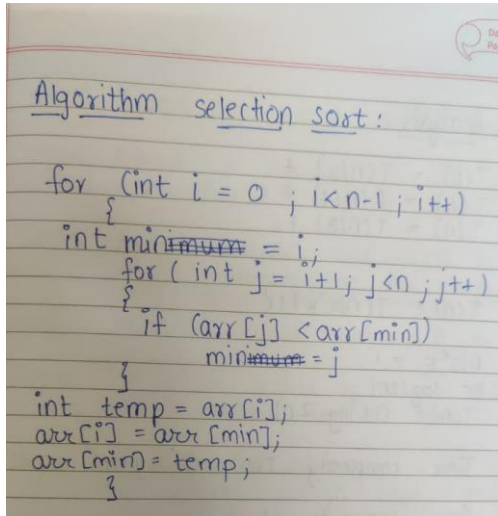 Algorithm selection sort:
for (int i = 0 ; i<n-1 ; i++)
{
int min = i;
for ( int j = i+1; j<n ; j++)
{
if (arr[j] < arr[min])
min = j
}
int temp = arr[i];
arr[i] = arr [min];
arr[min] = temp;
}